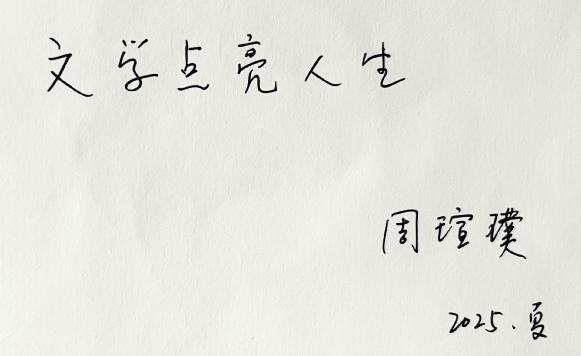 文学点亮人生
周瑄璞
2025.夏